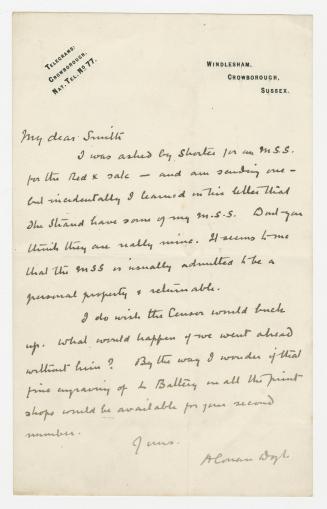 TELEGRAMS:
CROWBOROUGH.
NAT. TEL. No 77.
WINDLESHAM,
CROWBOROUGH,
SUSSEX.
My dear Smith
I was asked by Shorter for an M.S.S.
for the Red X sale — and am sending one —
but incidentally I learned in his letter that
The Strand have some of my M.S.S. Dont you
think they are really mine. It seems to me
that the MSS is usually admitted to be a
personal property & returnable.
I do wish the Censor would buck
up. What would happen if we went ahead
without him? By the way I wonder if that
fine engraving of L Battery in all the print
shops would be available for your second
number.
Yours.
A Conan Doyle